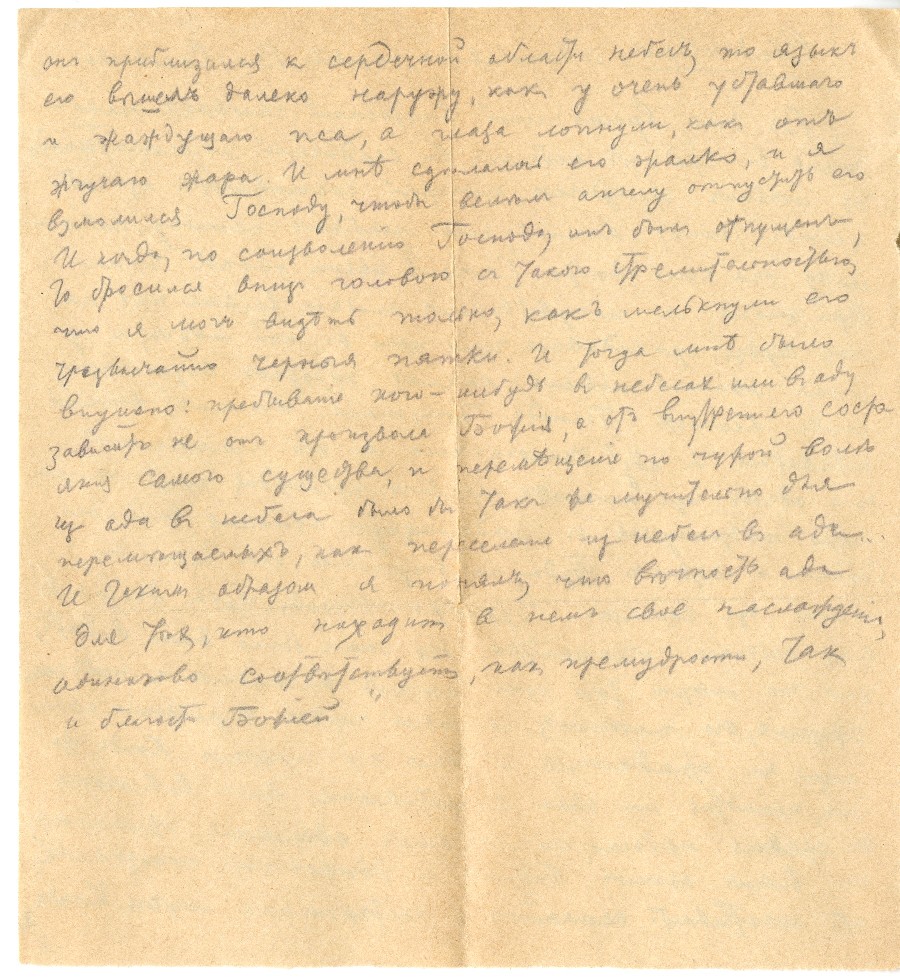 онъ приблизился к сердечной области небесъ, то языкъ
его вышелъ далеко наружу, как у очень уставшаго
и жаждущаго пса, а глаза лопнули, как отъ
жгучаго жара. И мнѣ сдѣлалось его жалко, и я
взмолился Господу, чтобы велѣлъ ангелу отпустить его
И когда, по соизволению Господа, онъ былъ отпущенъ,
То бросился внизъ головою съ такою стремительностью,
что я могъ видѣть только, какъ мелькнули его
чрезвычайно черныя пятки. И тогда мнѣ было
внушено: пребывание кого-нибудь в небесах или в аду
зависитъ не отъ произвола Божия, а отъ внутреннего состо-
яния самого существа, и перемѣщение по чужой волѣ
из ада в небеса было бы такъ же мучительно для
перемѣщаемыхъ, как переселение из небес в адъ...
И таким образом я понялъ, что вѣчность ада
для тѣхъ, кто находит в немъ свое наслаждение,
одинаково соотвѣтствуетъ, как премудрости, так
и благости Божией."